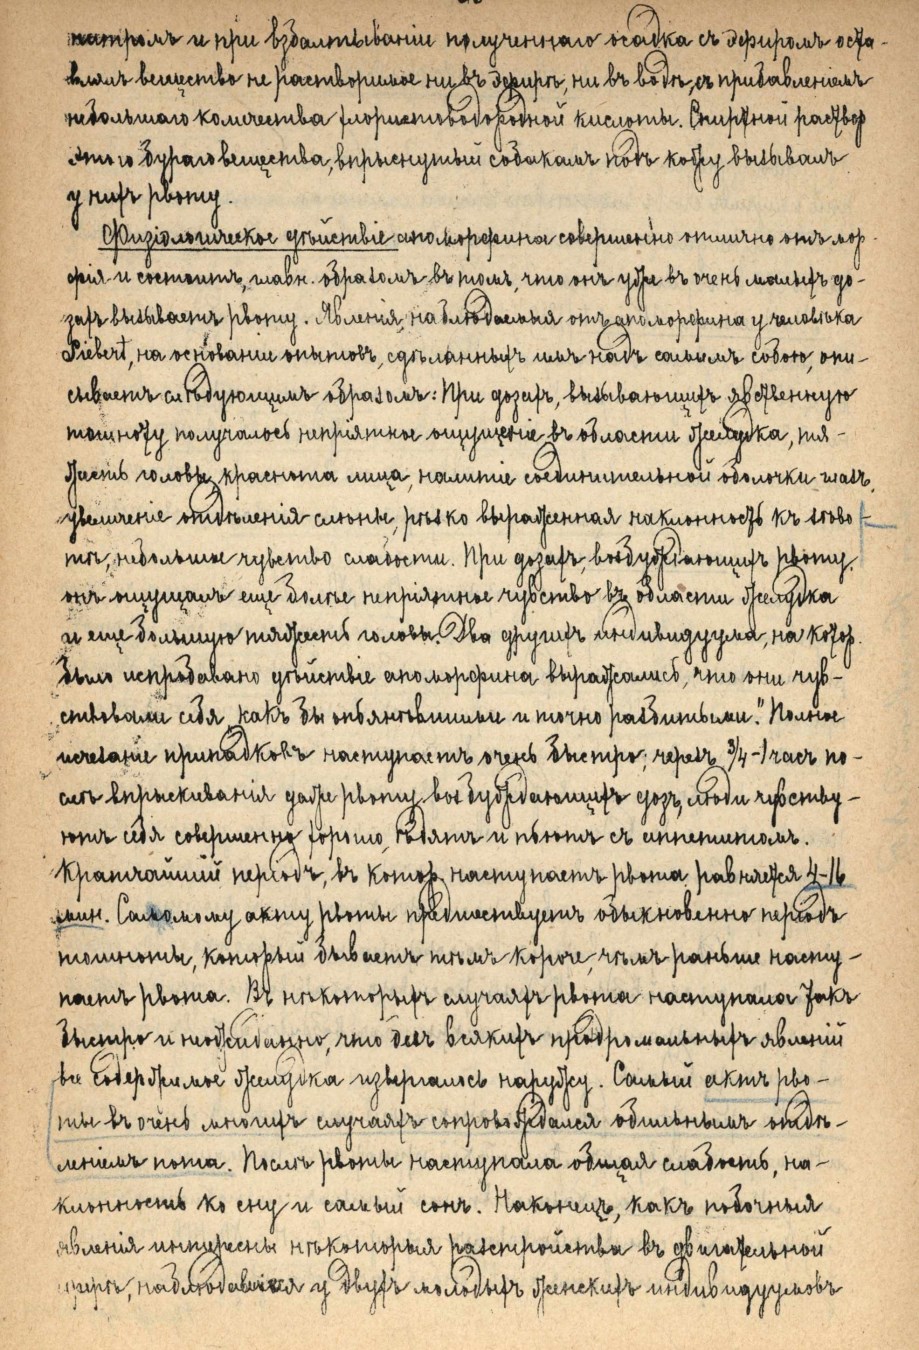 натромъ и при взбалтываніи полученнаго осадка съ эфиромъ оста-
вилъ вещество не растворимое ни въ эфирѣ, ни въ водѣ, съ прибавленіемъ
небольшаго количества хлористоводородной кислоты. Спиртной раствор
этого бураго вещества, впрыснутый собакамъ подъ кожу вызывалъ
у нихъ рвоту.
Физіологическое дѣйствіе апоморфина совершенно отлично отъ мор-
фія и состоитъ, главн. образомъ въ томъ, что онъ уже въ очень малыхъ до-
захъ вызываетъ рвоту. Явленія, наблюдаемыя отъ апоморфина у человѣка
Siebert, на основаніи опытовъ, сдѣланныхъ имъ надъ самымъ собою, опи-
сываетъ слѣдующимъ образомъ: При дозахъ, вызывающихъ явственную
тошноту получалось непріятное ощущеніе въ области желудка, тя-
жесть головы, краснота лица, налитіе соединительной оболочки глазъ,
увеличеніе отдѣленія слюны, рѣзко выраженная наклонность къ зѣво-
тѣ, небольшое чувство слабости. При дозахъ, возбуждающихъ рвоту,
онъ ощущалъ еще болѣе непріятное чувство въ области желудка
и еще большую тяжесть головы. Два другихъ индивидуума, на котор.
было испробовано дѣйствіе апоморфина выражались, что они чув-
ствовали себя „какъ бы опьянѣвшими и точно разбитыми." Полное
исчезаніе припадковъ наступаетъ очень быстро; черезъ 3/4-1 часъ по-
слѣ впрыскиванія даже рвоту возбуждающихъ дозъ, люди чувству-
ютъ себя совершенно хорошо, ѣдятъ и пьютъ съ аппетитомъ.
Кратчайшій періодъ, въ котор. наступаетъ рвота, равняется 4-16
мин. Самому акту рвоты предшествуетъ обыкновенно періодъ
тошноты, который бываетъ тѣмъ короче, чѣмъ раньше насту-
паетъ рвота. Въ нѣкоторыхъ случаяхъ рвота наступала такъ
быстро и неожиданно, что безъ всякихъ продромальныхъ явленій
все содержимое желудка извергалось наружу. Самый актъ рво-
ты въ очень многихъ случаяхъ сопровождался обильнымъ отдѣ-
леніемъ пота. Послѣ рвоты наступала общая слабость, на-
клонность ко сну и самый сонъ. Наконецъ, какъ побочныя
явленія интересны нѣкоторыя разстройства въ двигательной
сферѣ, наблюдавшіяся у двухъ молодыхъ женскихъ индивидуумовъ